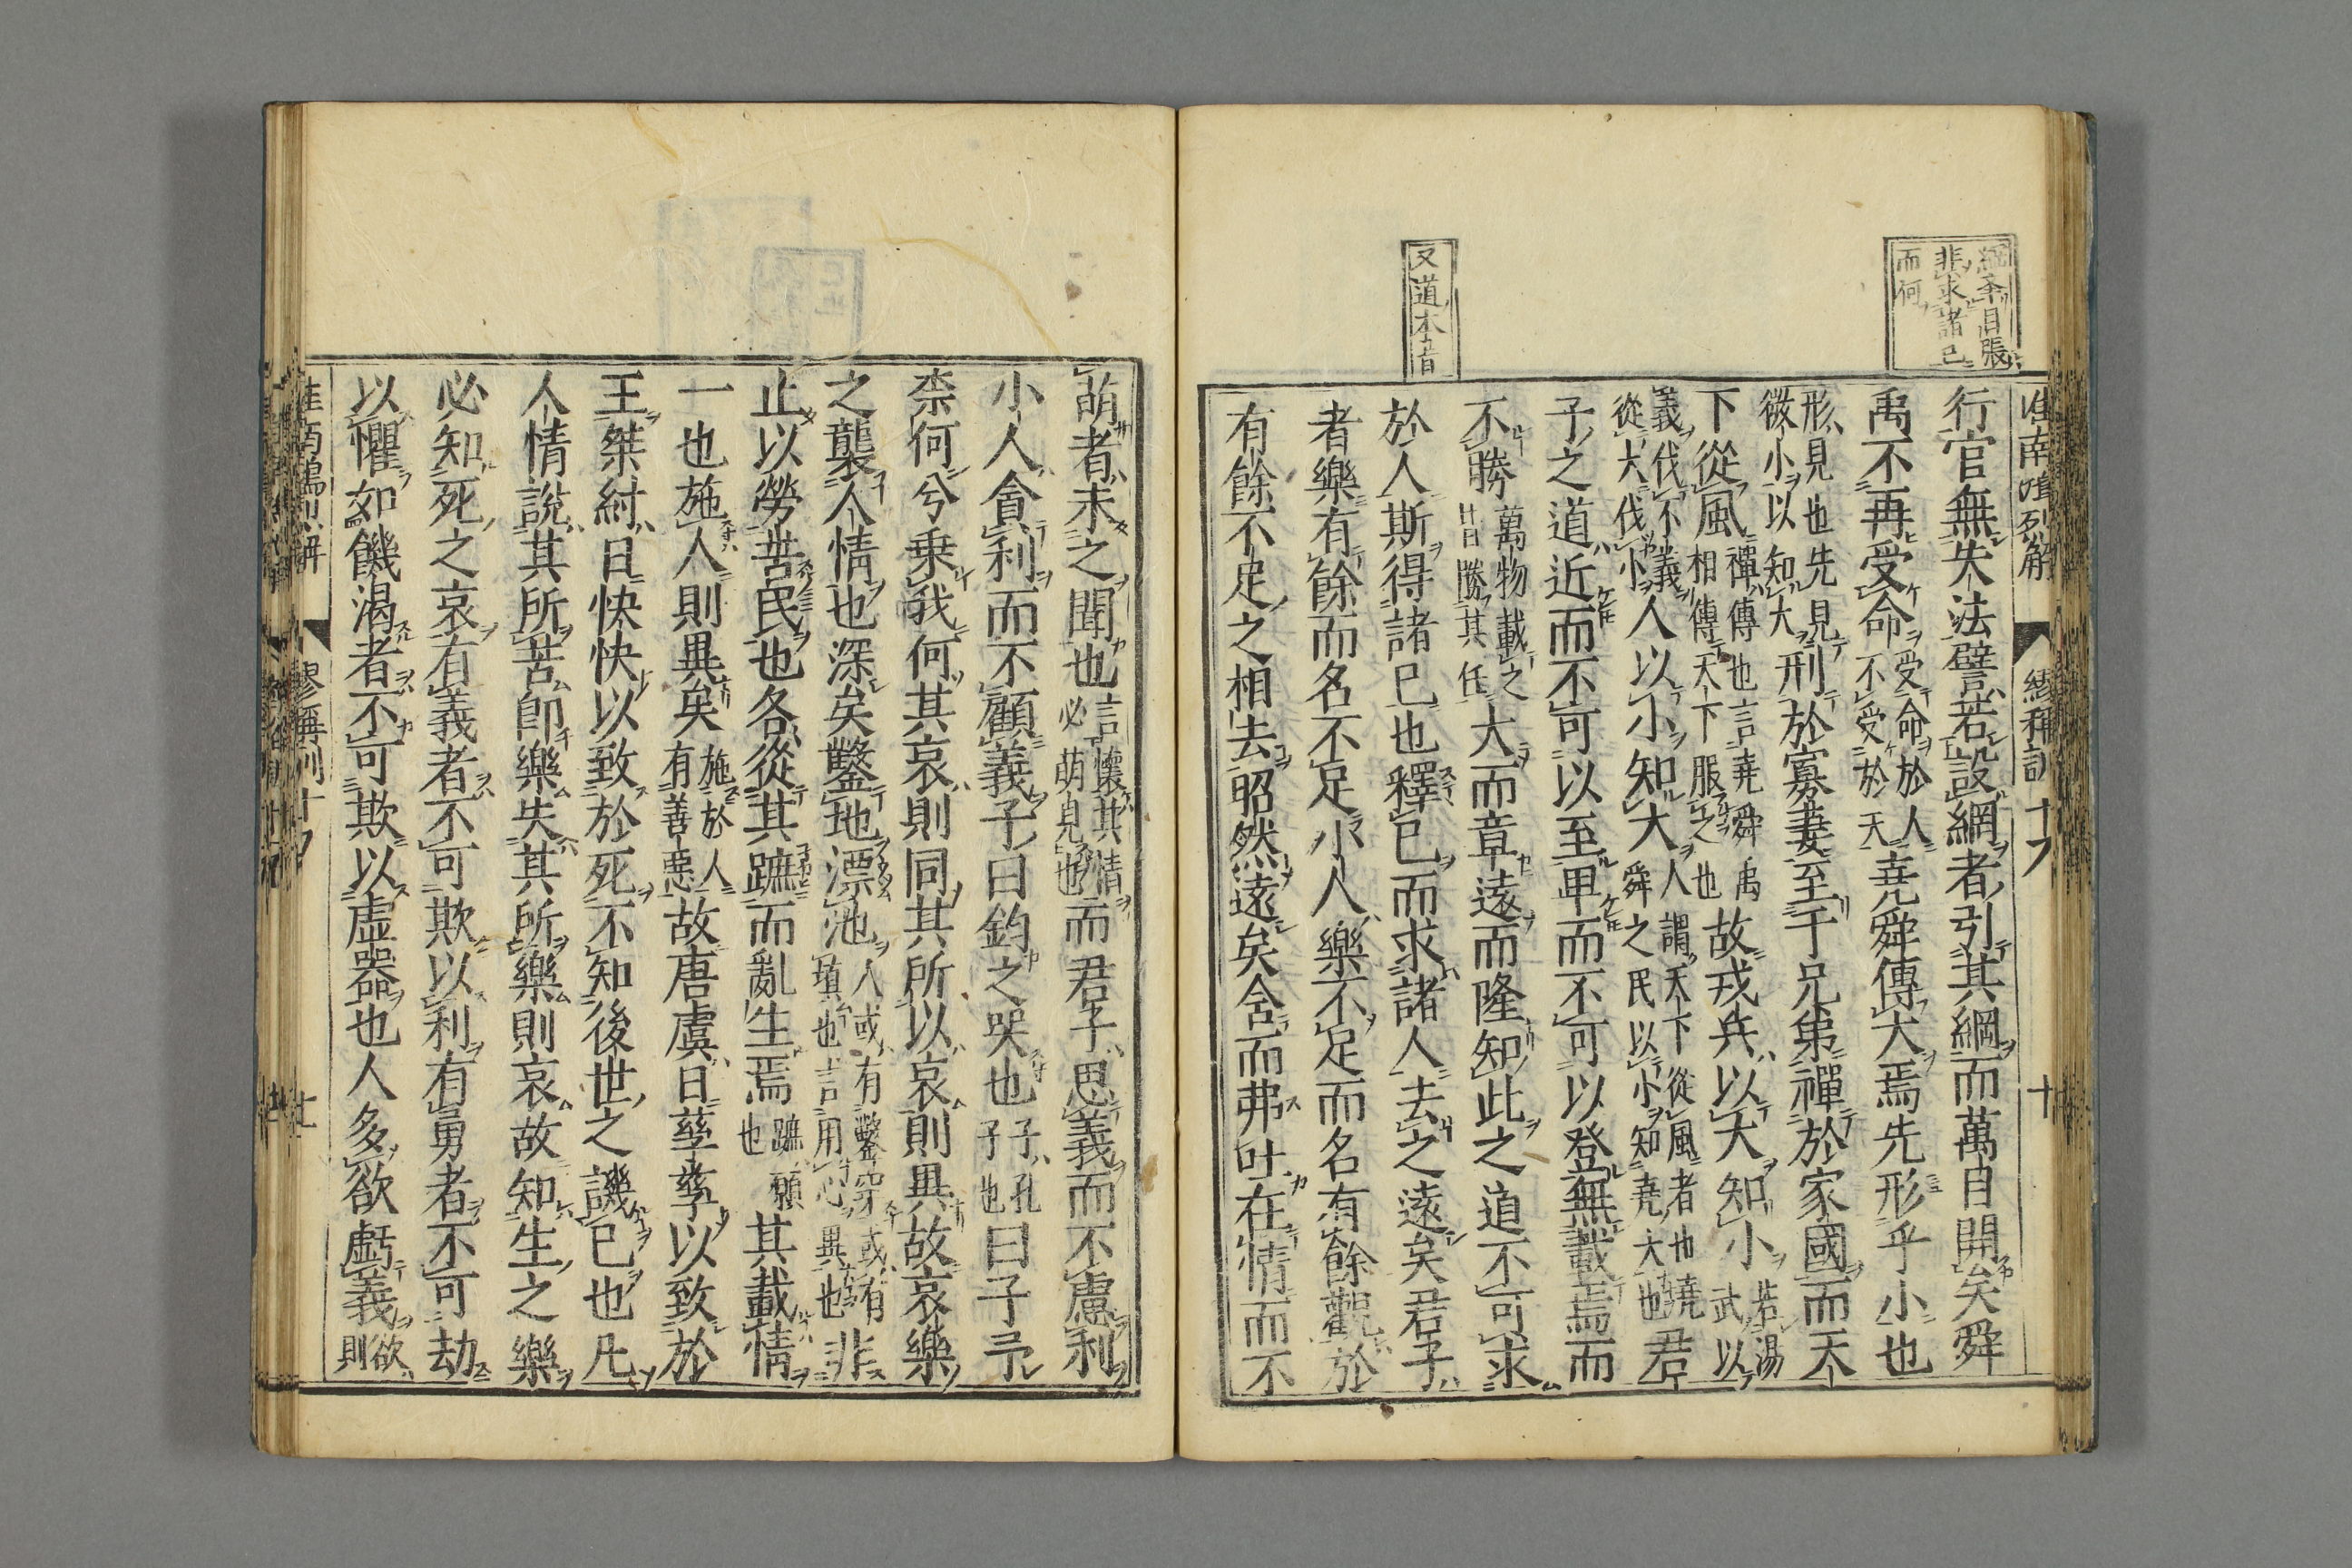 綱舉目張
非求諸己
而何
又道本音
淮南鴻烈解 繆稱訓十 十
行官無失法譬若設綱者引其綱而萬目開矣舜
禹不再受命受命於人不受於天堯舜傳大焉先形乎小也
形見也先見微小以知大刑於寡妻至于兄弟禪於家國而天
下從風禪傳也言堯舜禹相傳天下服之也故戎兵以大知小若湯武以
義伐不義從大伐小人以小知大人謂天下從風者也堯舜之民以小知堯大也君
子之道近而不可以至卑而不可以登無載焉而
不勝萬物載之皆勝其任大而章遠而隆知此之道不可求
於人斯得諸己也釋己而求諸人去之遠矣君子
者樂有餘而名不足小人樂不足而名有餘觀於
有餘不足之相去昭然遠矣含而弗吐在情而不
萌者未之聞也言懷其情必萌見也而君子思義而不慮利
小人貪利而不顧義子曰鈞之哭也子孔子也曰子予
柰何兮乗我何其哀則同其所以哀則異故哀樂
之襲人情也深矣鑿地漂池人或有鑿穿或有填也言用心異也非
止以勞苦民也各從其蹠而亂生焉蹠願也其載情
一也施人則異矣施於人有善惡故唐虞日孳孳以致於
王桀紂日怏怏以致於死不知後世之譏已也凡
人情說其所苦卽樂失其所樂則哀故知生之樂
必知死之哀有義者不可欺以利有勇者不可劫
以懼如饑渴者不可欺以虛器也人多欲虧義欲則